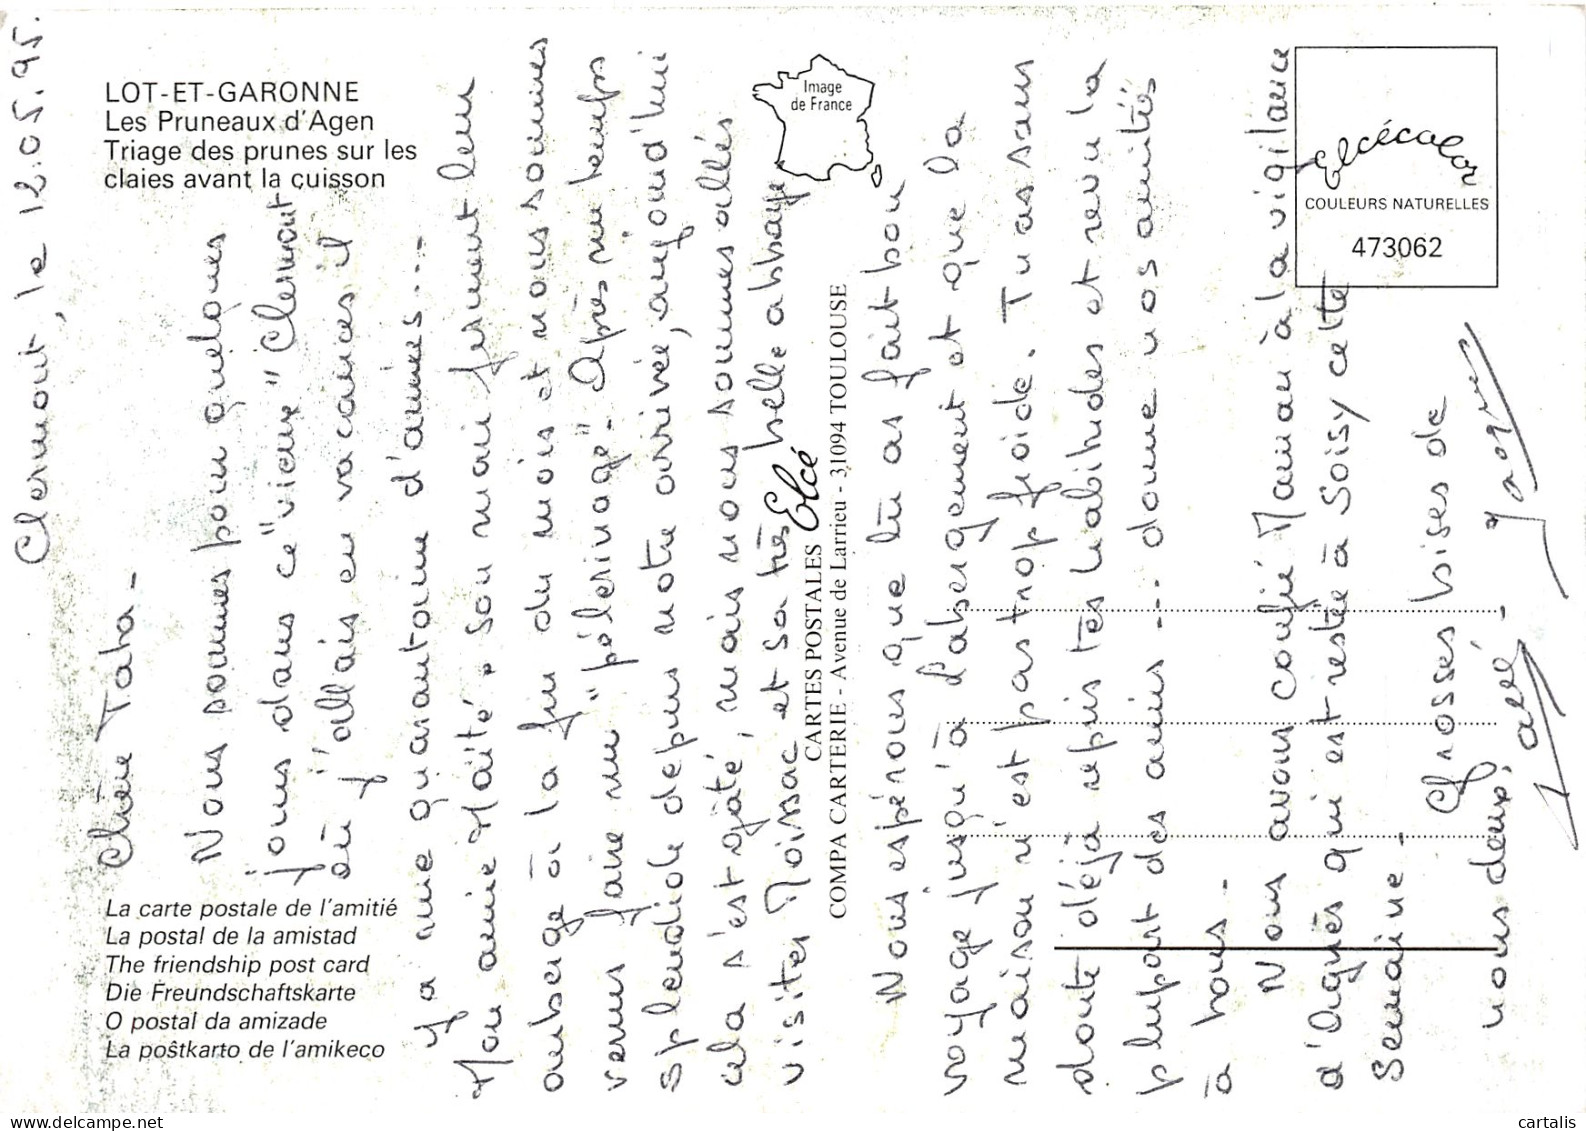 LOT-ET-GARONNE
Les Pruneaux d'Agen
Triage des prunes sur les
claies avant la cuisson
La carte postale de l'amitié
La postal de la amistad
The friendship post card
Die Freundschaftskarte
O postal da amizade
La poŝtkarto de l'amikeco
Image
de France
Elcé
CARTES POSTALES
COMPA CARTERIE - Avenue de Larrieu - 31094 TOULOUSE
Elcécolor
COULEURS NATURELLES
473062
Clermont, le 12.05.95
Chère Taha -
Nous sommes pour quelques
jours dans ce "vieux" Clermont
où j'allais en vacances il
y a une quarantaine d'années...
Mon amie Maïté & son mari ferment leur
auberge à la fin du mois et nous sommes
venus faire un "pélerinage". Après un temps
splendide depuis notre arrivée, aujourd'hui
cela s'est gâté, mais nous sommes allés
visiter Moissac et sa très belle abbaye.
Nous espérons que tu as fait bon
voyage jusqu'à l'abergement et que la
maison n'est pas trop froide. Tu as sans
doute déjà repris tes habitudes et revu la
plupart des amis... donne nos amitiés
à tous -
Nous avons confié Maman à la vigilance
d'Agnès qui est restée à Soisy cette
semaine -
Grosses bises de
nous deux,